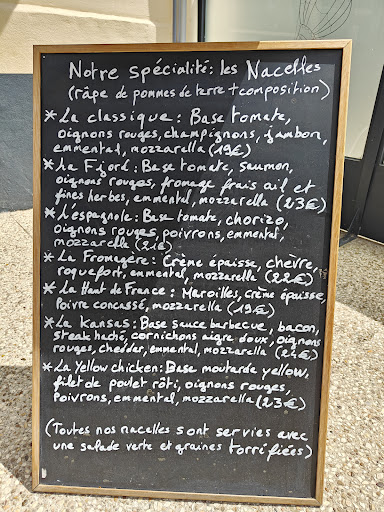 Notre spécialité: les Nacelles
(râpe de pommes de terre + composition)
*La classique: Base tomate,
oignons rouges, champignons, jambon,
emmental, mozzarella (19€)
*La Fjord: Base tomate, saumon,
oignons rouges, fromage frais ail et
fines herbes, emmental, mozzarella (23€)
*L'espagnole: Base tomate, chorizo,
oignons rouges, poivrons, emmental,
mozzarella (21€)
*La Fromagère: Crème épaisse, chèvre,
roquefort, emmental, mozzarella (22€)
*La Haut de France: Maroilles, crème épaisse,
Poivre concassé, mozzarella (19€)
*La Kansas: Base sauce barbecue, bacon,
steak haché, cornichons aigre doux, oignons
rouges, cheddar, emmental, mozzarella (24€)
*La Yellow chicken: Base moutarde yellow,
filet de poulet rôti, oignons rouges,
Poivrons, emmental, mozzarella (23€)
(Toutes nos nacelles sont servies avec
une salade verte et graines torréfiées)